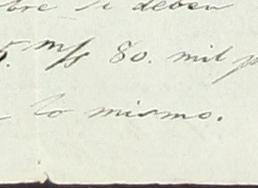 bre se deben
5. m/s 80. mil p
lo mismo.